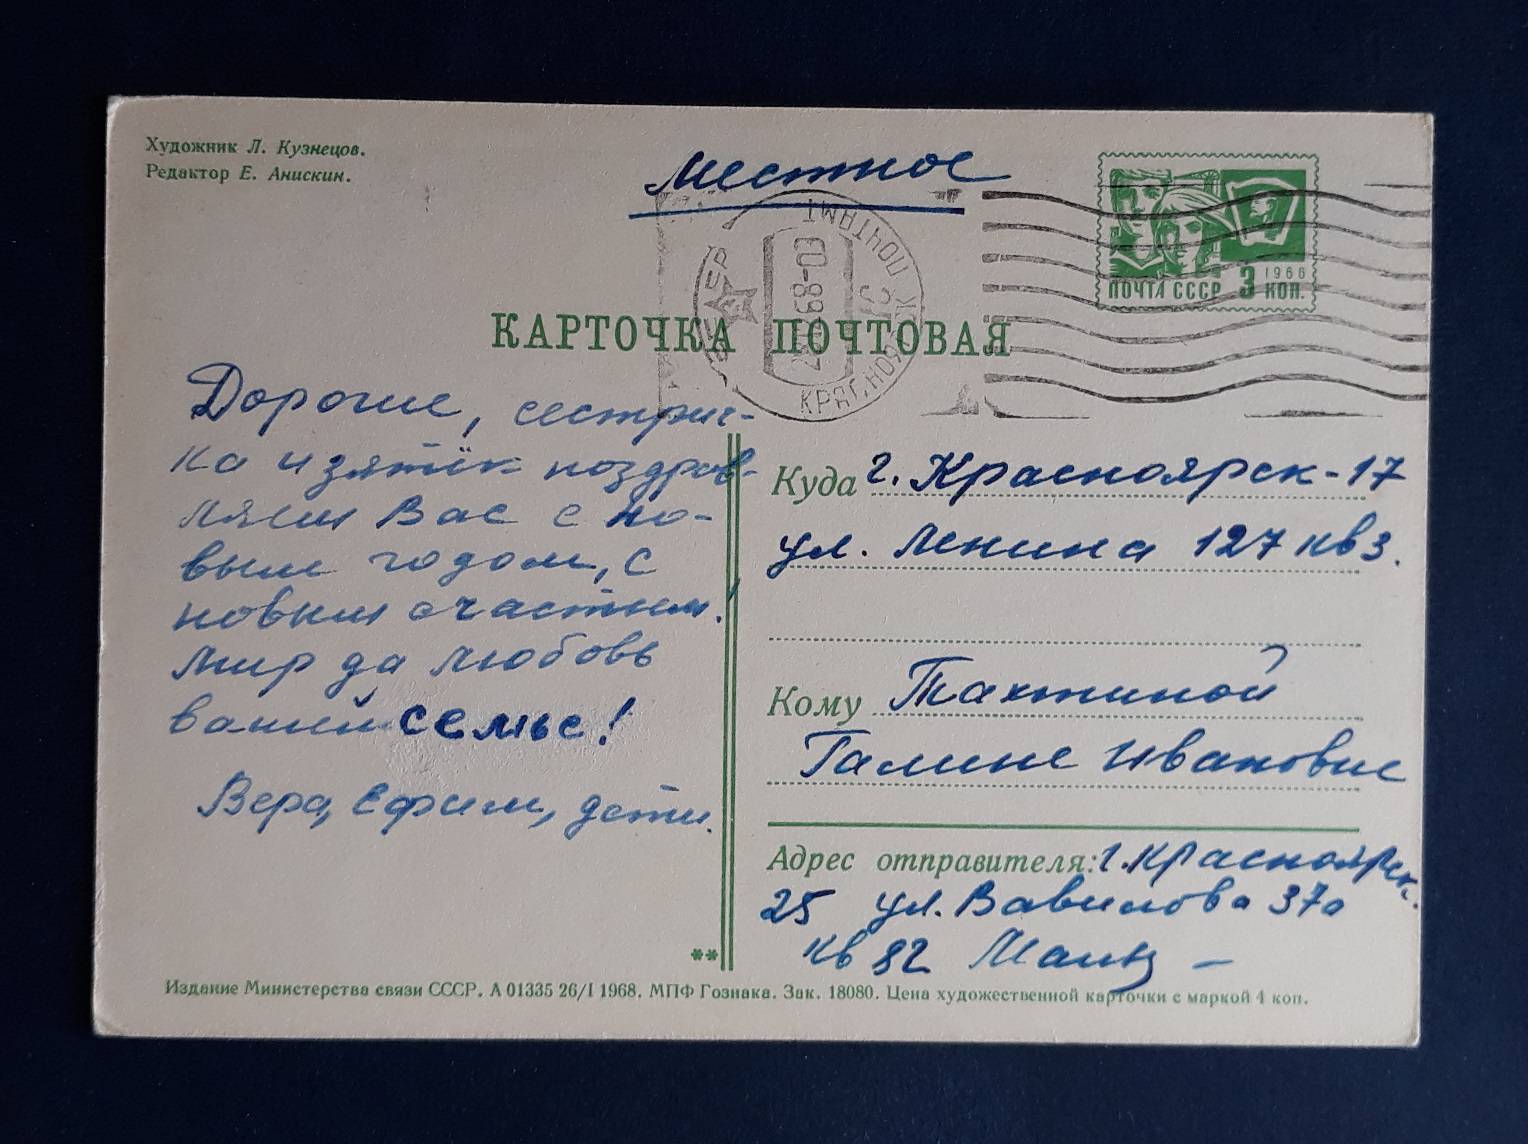 Художник Л. Кузнецов.
Редактор Е. Анискин.
Местное
ПОЧТА СССР 3 1966 КОП.
ПОЧТАМТ
КАРТОЧКА ПОЧТОВАЯ
Дорогие, сестрич-
ка и зятёк поздрав-
ляем Вас с но-
вым годом, с
новым счастьем.
Мир да любовь
вашей семье!
Вера, Ефим, дети.
Куда г. Красноярск-17
ул. Ленина 127 кв 3.
Кому Тахтиной
Галине Ивановне
Адрес отправителя: г. Красноярск
25 ул. Вавилова 37а
кв 82
**
Издание Министерства связи СССР. А 01335 26/I 1968. МПФ Гознака. Зак. 18080. Цена художественной карточки с маркой 4 коп.